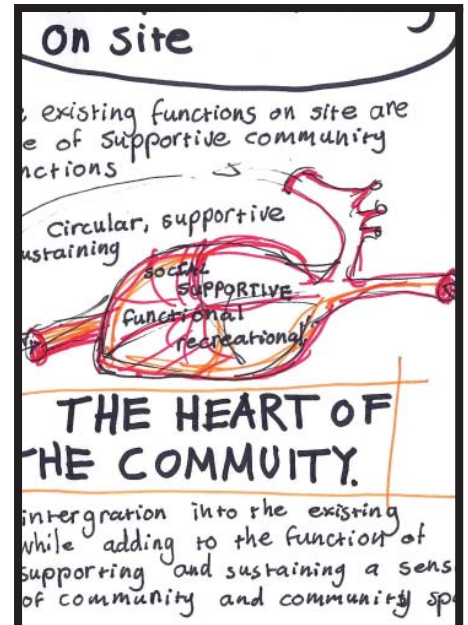 on site
existing functions on site are
e of supportive community
nctions
Circular, supportive
ustaining
SOCIAL
SUPPORTIVE
functional
recreational
THE HEART OF
THE COMMUITY.
intergration into the existing
while adding to the function of
supporting and sustaining a sens
of community and community spa